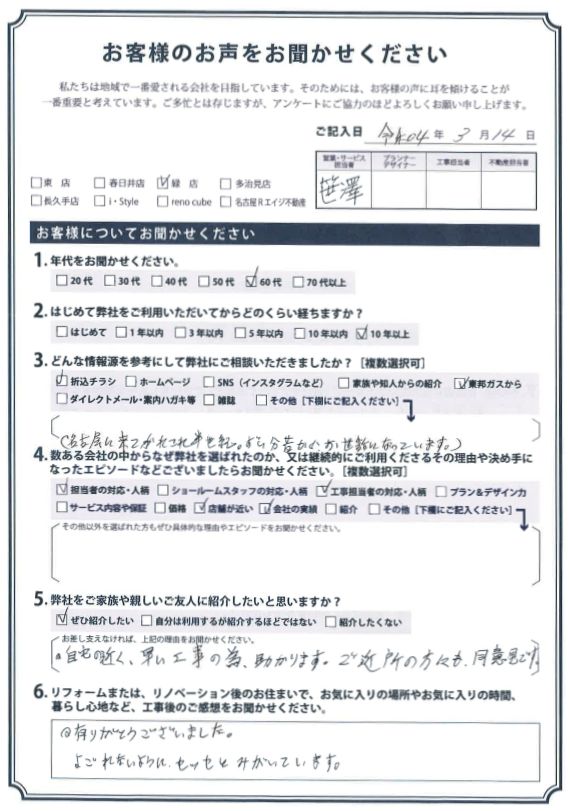 お客様のお声をお聞かせください
私たちは地域で一番愛される会社を目指しています。そのためには、お客様の声に耳を傾けることが
一番重要と考えています。ご多忙とは存じますが、アンケートにご協力のほどよろしくお願い申し上げます。
ご記入日 令和04年3月14日
営業・サービス担当者 プランナーデザイナー 工事担当者 不動産担当者
笹澤
□東 店 □春日井店 ☑緑 店 □多治見店
□長久手店 □i・Style □reno cube □名古屋Rエイジ不動産
お客様についてお聞かせください
1. 年代をお聞かせください。
□20代 □30代 □40代 □50代 ☑60代 □70代以上
2. はじめて弊社をご利用いただいてからどのくらい経ちますか？
□はじめて □1年以内 □3年以内 □5年以内 □10年以内 ☑10年以上
3. どんな情報源を参考にして弊社にご相談いただきましたか？［複数選択可］
☑折込チラシ □ホームページ □SNS（インスタグラムなど） □家族や知人からの紹介 ☑東邦ガスから
□ダイレクトメール・案内ハガキ等 □雑誌 □その他［下欄にご記入ください］
名古屋に来てかれこれ半世紀。 お世話になっています。
4. 数ある会社の中からなぜ弊社を選ばれたのか、又は継続的にご利用くださるその理由や決め手に
なったエピソードなどございましたらお聞かせください。［複数選択可］
☑担当者の対応・人柄 □ショールームスタッフの対応・人柄 ☑工事担当者の対応・人柄 □プラン&デザイン力
□サービス内容や保証 □価格 ☑店舗が近い ☑会社の実績 □紹介 □その他［下欄にご記入ください］
その他以外を選ばれた方もぜひ具体的な理由やエピソードをお聞かせください。
5. 弊社をご家族や親しいご友人に紹介したいと思いますか？
☑ぜひ紹介したい □自分は利用するが紹介するほどではない □紹介したくない
お差し支えなければ、上記の理由をお聞かせください。
自宅の近く、早い工事の為、助かります。ご近所の方々も、同意見です。
6. リフォームまたは、リノベーション後のお住まいで、お気に入りの場所やお気に入りの時間、
暮らし心地など、工事後のご感想をお聞かせください。
◎有りがとうございました。
よごれないように、セッセとみがいています。